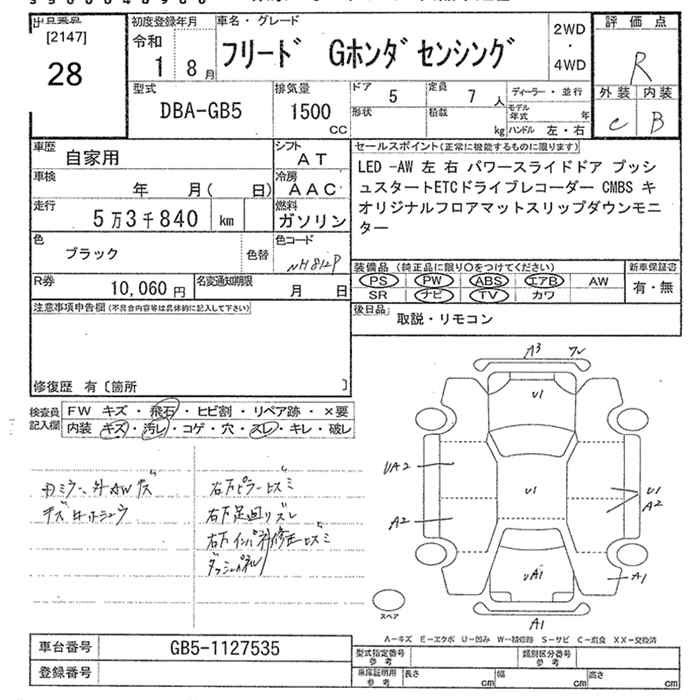 [2147]
28
初度登録年月
令和
1 8月
車名・グレード
フリード Gホンダセンシング
2WD
・
4WD
評価点
R
外装 内装
C B
型式
DBA-GB5
排気量
1500
CC
ドア
5
定員
7 人
形状
積載
kg
ディーラー・並行
モデル年式 年
ハンドル 左・右
車歴
自家用
シフト
AT
車検
年 月( 日)
冷房
AAC
走行
5万3千840 km
燃料
ガソリン
色
ブラック
色替
色コード
NH812P
R券
10,060円
名変通知期限
月 日
セールスポイント(正常に機能するものに限ります)
LED -AW 左 右 パワースライドドア プッシ
ュスタートETCドライブレコーダー CMBS キ
オリジナルフロアマットスリップダウンモニ
ター
装備品 (純正品に限り○をつけてください)
PS PW ABS エアB AW
SR ナビ TV カワ
新車保証書
有・無
後日品
取説・リモコン
注意事項申告欄(不具合内容等は具体的に記入して下さい)
修復歴 有〔箇所 〕
検査員
記入欄
FW キズ・飛石・ヒビ割・リペア跡・×要
内装 キズ・汚レ・コゲ・穴・スレ・キレ・破レ
右下ピラーヒズミ
右下足回リズレ
ダッシュパネル
A3
U1
UA2
U1
U1
A2
A2
UA1
A1
A1
スペア
A-キズ E-エクボ U-凹み W-補修跡 S-サビ C-腐食 XX-交換済
車台番号
GB5-1127535
登録番号
型式指定番号
参考
類別区分番号
参考
車庫証明用
参考
長さ cm
幅 cm
高さ cm